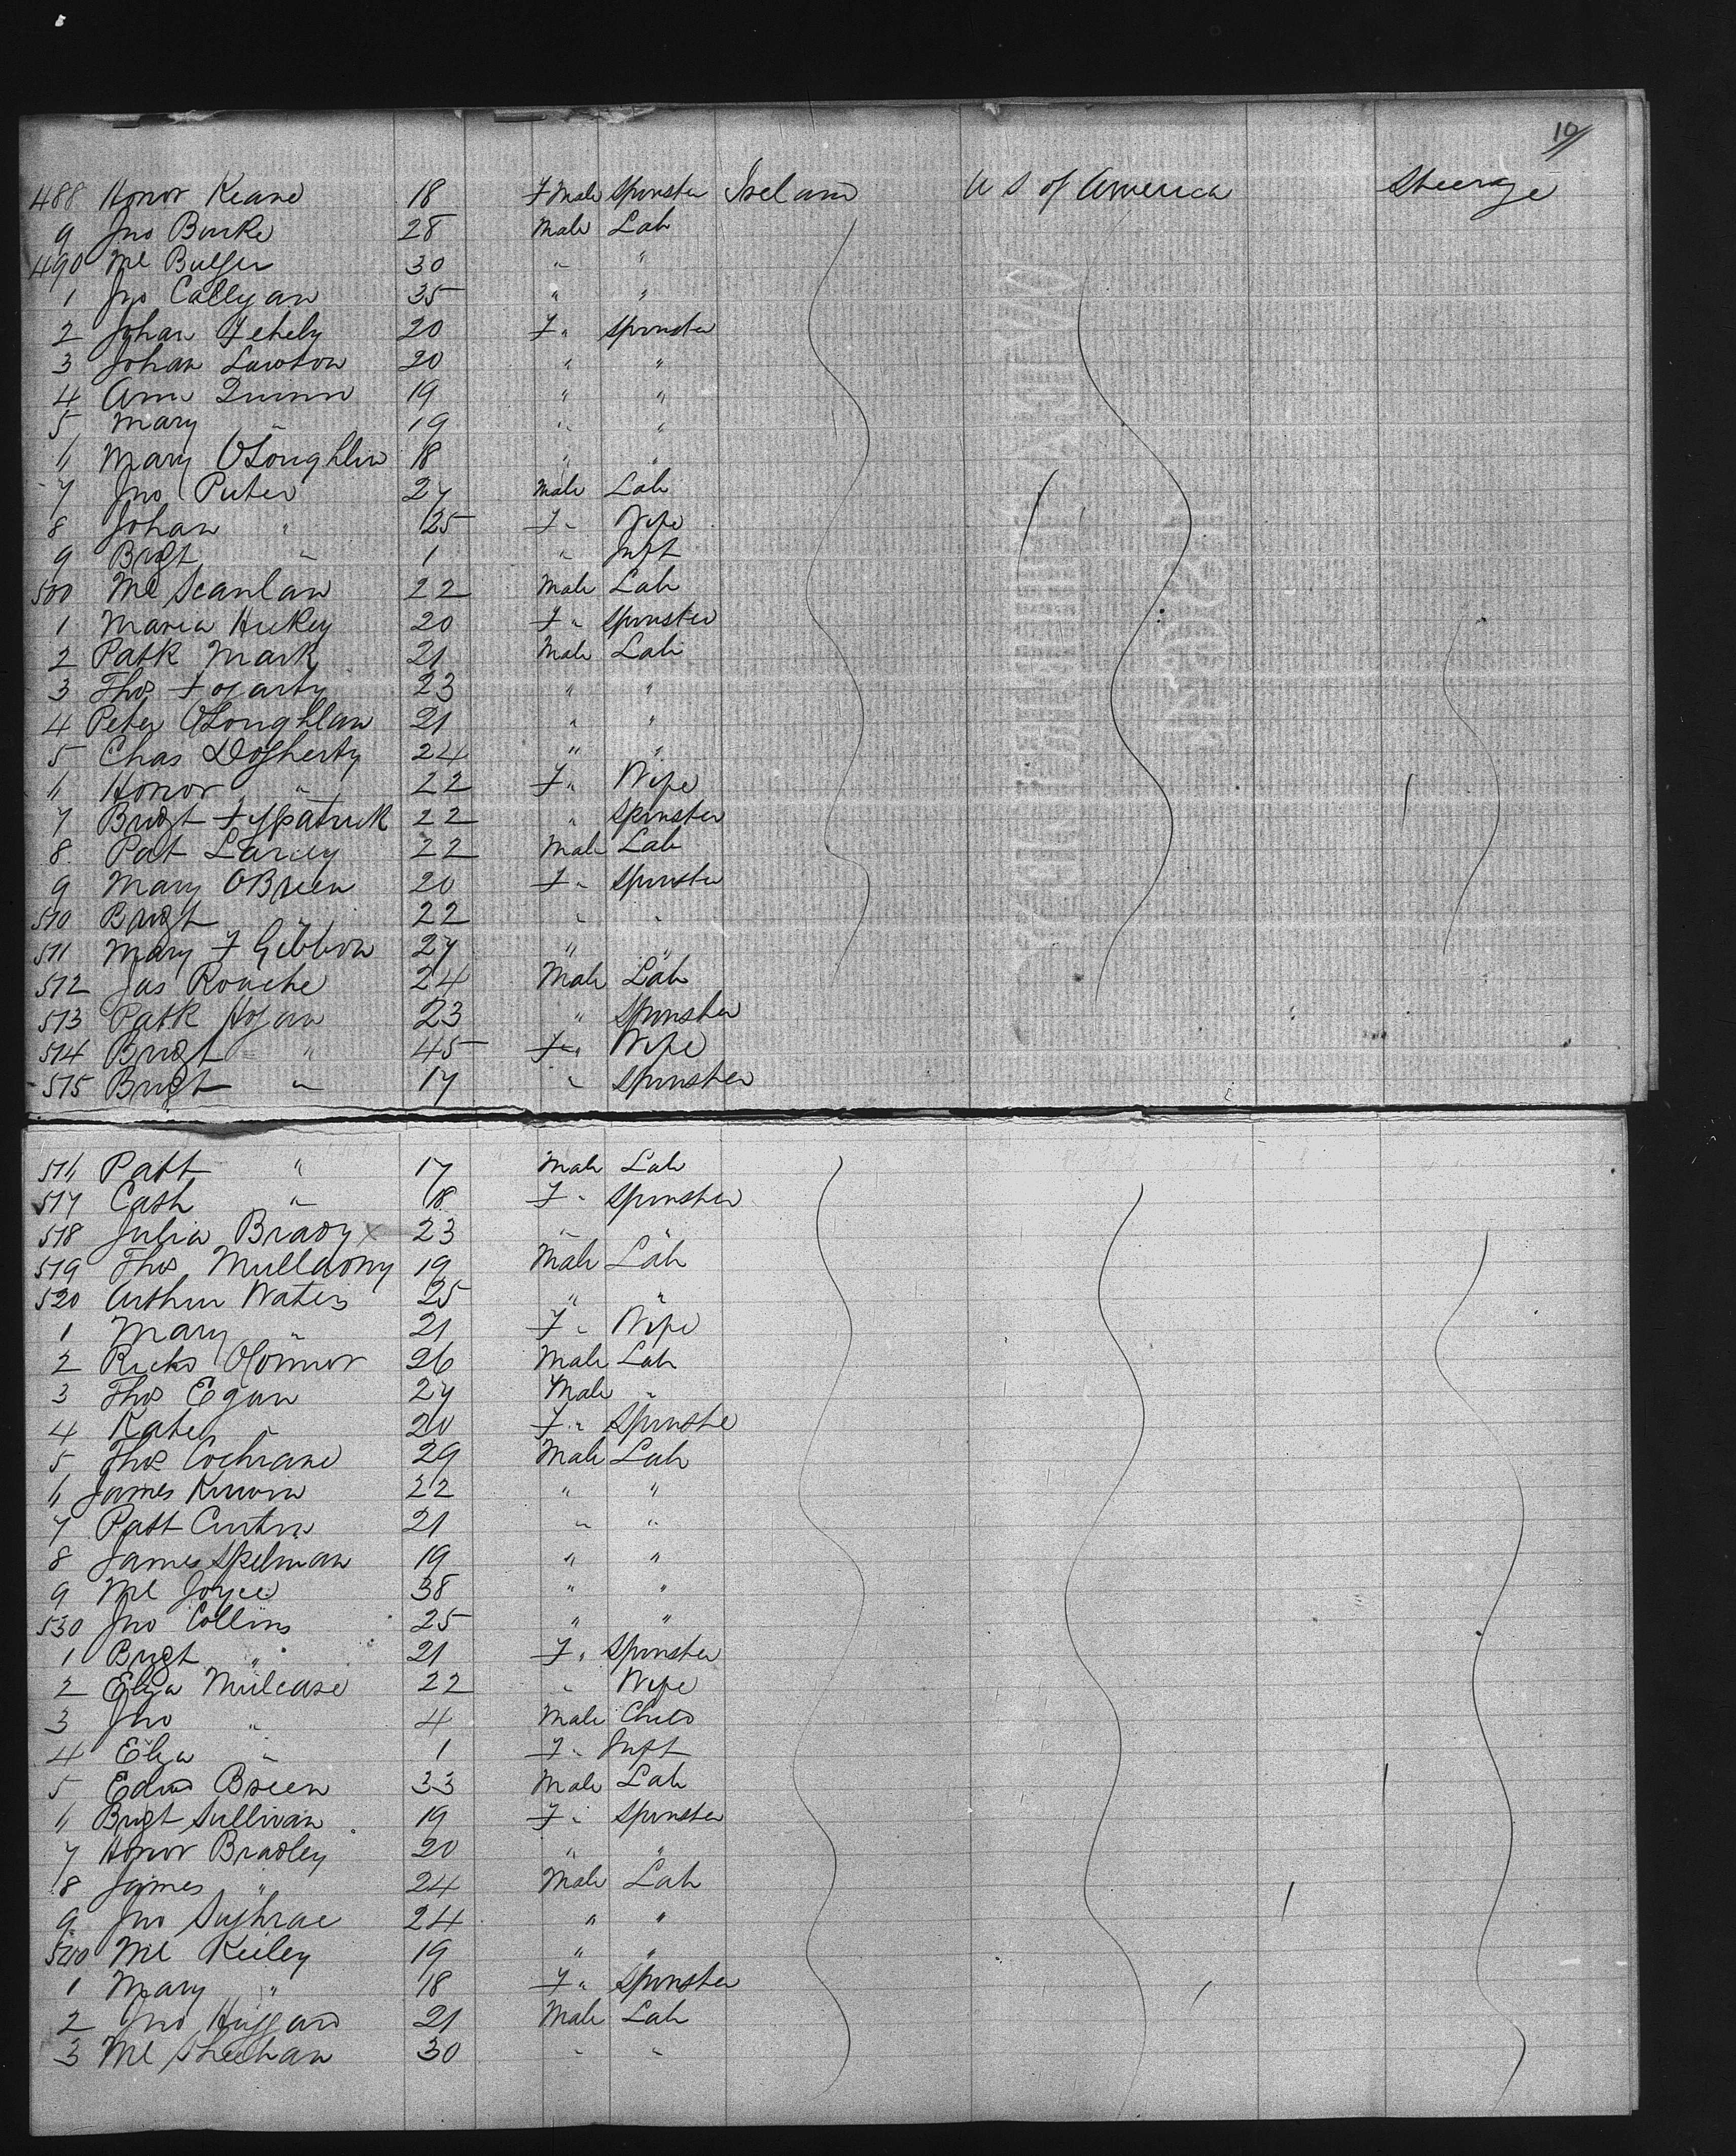 10
488 Honor Keane 18 F Male Spinster Ireland U S of America Steerage
9 Jno Burke 28 Male Lab
490 Ml Bulger 30 " "
1 Jno Callyan 35 " "
2 Johan Fehely 20 F " Spinster
3 Johan Lawton 20 " "
4 Ann Quinn 19 " "
5 Mary " 19 " "
6 Mary OLoughlin 18 " "
7 Jno Puter 27 Male Lab
8 Johan " 25 F " Wife
9 Bridgt " 1 " Inft
500 Ml Scanlan 22 Male Lab
1 Maria Hickey 20 F " Spinster
2 Patk Mark 21 Male Lab
3 Thos Fogarty 23 " "
4 Peter OLoughlan 21 " "
5 Chas Dogherty 24 " "
6 Honor " 22 F " Wife
7 Bridgt Fitzpatrick 22 " Spinster
8 Pat Larcey 22 Male Lab
9 Mary OBreen 20 F " Spinster
510 Bridgt 22 " "
511 Mary F Gibbon 27 " "
512 Jas Rouche 24 Male Lab
513 Patk Hogan 23 " Spinster
514 Bridgt " 45 F " Wife
515 Bridgt " 17 " Spinster
516 Patt " 17 Male Lab
517 Cath " 18 F " Spinster
518 Julia Brady x 23 " "
519 Thos Mullaony 19 Male Lab
520 Arthur Waters 25 " "
1 Mary " 21 F " Wife
2 Richd OConnor 26 Male Lab
3 Thos Egan 27 Male "
4 Kate " 20 F " Spinste
5 Thos Cochrane 29 Male Lab
6 James Kirwin 22 " "
7 Patt Curtin 21 " "
8 James Spelman 19 " "
9 Ml Joyce 38 " "
530 Jno Collins 25 " "
1 Bridgt " 21 F " Spinster
2 Eliza Mulcase 22 " Wife
3 Jno " 4 Male Child
4 Eliza " 1 F " Inft
5 Edwd Breen 33 Male Lab
6 Bridgt Sullivan 19 F " Spinster
7 Honor Bradley 20 " "
8 James " 24 Male Lab
9 Jno Sughrae 24 " "
540 Ml Keiley 19 " "
1 Mary " 18 F " Spinster
2 Jno Huggard 21 Male Lab
3 Ml Sheehan 30 " "